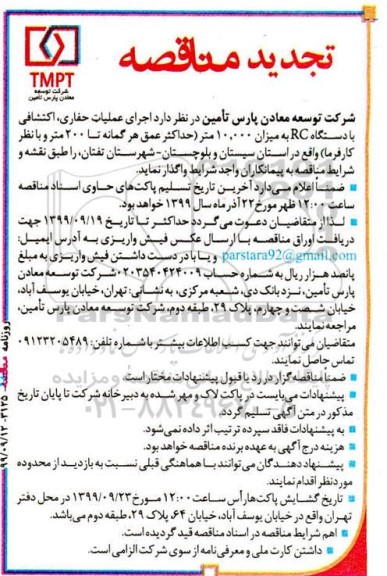 تجدید مناقصه
TMPT
شرکت توسعه
معادن پارس تأمین
شرکت توسعه معادن پارس تأمین در نظر دارد اجرای عملیات حفاری، اکتشافی
با دستگاه RC به میزان ۱۰,۰۰۰ متر (حداکثر عمق هر گمانه تا ۲۰۰ متر و با نظر
کارفرما) واقع در استان سیستان و بلوچستان - شهرستان تفتان، را طبق نقشه و
شرایط مناقصه به پیمانکاران واجد شرایط واگذار نماید.
ضمناً اعلام می‌دارد آخرین تاریخ تسلیم پاکت‌های حاوی اسناد مناقصه
ساعت ۱۲:۰۰ ظهر مورخ ۲۲ آذر ماه سال ۱۳۹۹ خواهد بود.
لذا از متقاضیان دعوت می‌گردد حداکثر تا تاریخ ۱۳۹۹/۰۹/۱۹ جهت
دریافت اوراق مناقصه با ارسال عکس فیش واریزی به آدرس ایمیل:
parstara92@gmail.com و یا با در دست داشتن فیش واریزی به مبلغ
پانصد هزار ریال به شماره حساب ۰۲۰۳۵۴۰۴۲۴۰۰۹ شرکت توسعه معادن
پارس تأمین، نزد بانک دی، شعبه مرکزی، به نشانی: تهران، خیابان یوسف آباد،
خیابان شصت و چهارم، پلاک ۲۹، طبقه دوم، شرکت توسعه معادن پارس تأمین،
مراجعه نمایند.
متقاضیان می‌توانند جهت کسب اطلاعات بیشتر با شماره تلفن: ۰۹۱۲۳۲۰۵۴۸۹
تماس حاصل نمایند.
ضمناً مناقصه گزار در رد یا قبول پیشنهادات مختار است.
پیشنهادات می‌بایست در پاکت لاک و مهر شده به دبیرخانه شرکت تا پایان تاریخ
مذکور در متن آگهی تسلیم گردد.
به پیشنهادات فاقد سپرده ترتیب اثر داده نمی‌شود.
هزینه درج آگهی به عهده برنده مناقصه خواهد بود.
پیشنهاد دهندگان می‌توانند با هماهنگی قبلی نسبت به بازدید از محدوده
مورد نظر اقدام نمایند.
تاریخ گشایش پاکت‌ها رأس ساعت ۱۲:۰۰ مورخ ۱۳۹۹/۰۹/۲۳ در محل دفتر
تهران واقع در خیابان یوسف آباد، خیابان ۶۴، پلاک ۲۹، طبقه دوم می‌باشد.
اهم شرایط مناقصه در اسناد مناقصه قید گردیده است.
داشتن کارت ملی و معرفی نامه از سوی شرکت الزامی است.
روزنامه مناقصه ۳۱۲۵ - ۹۹/۰۹/۱۲